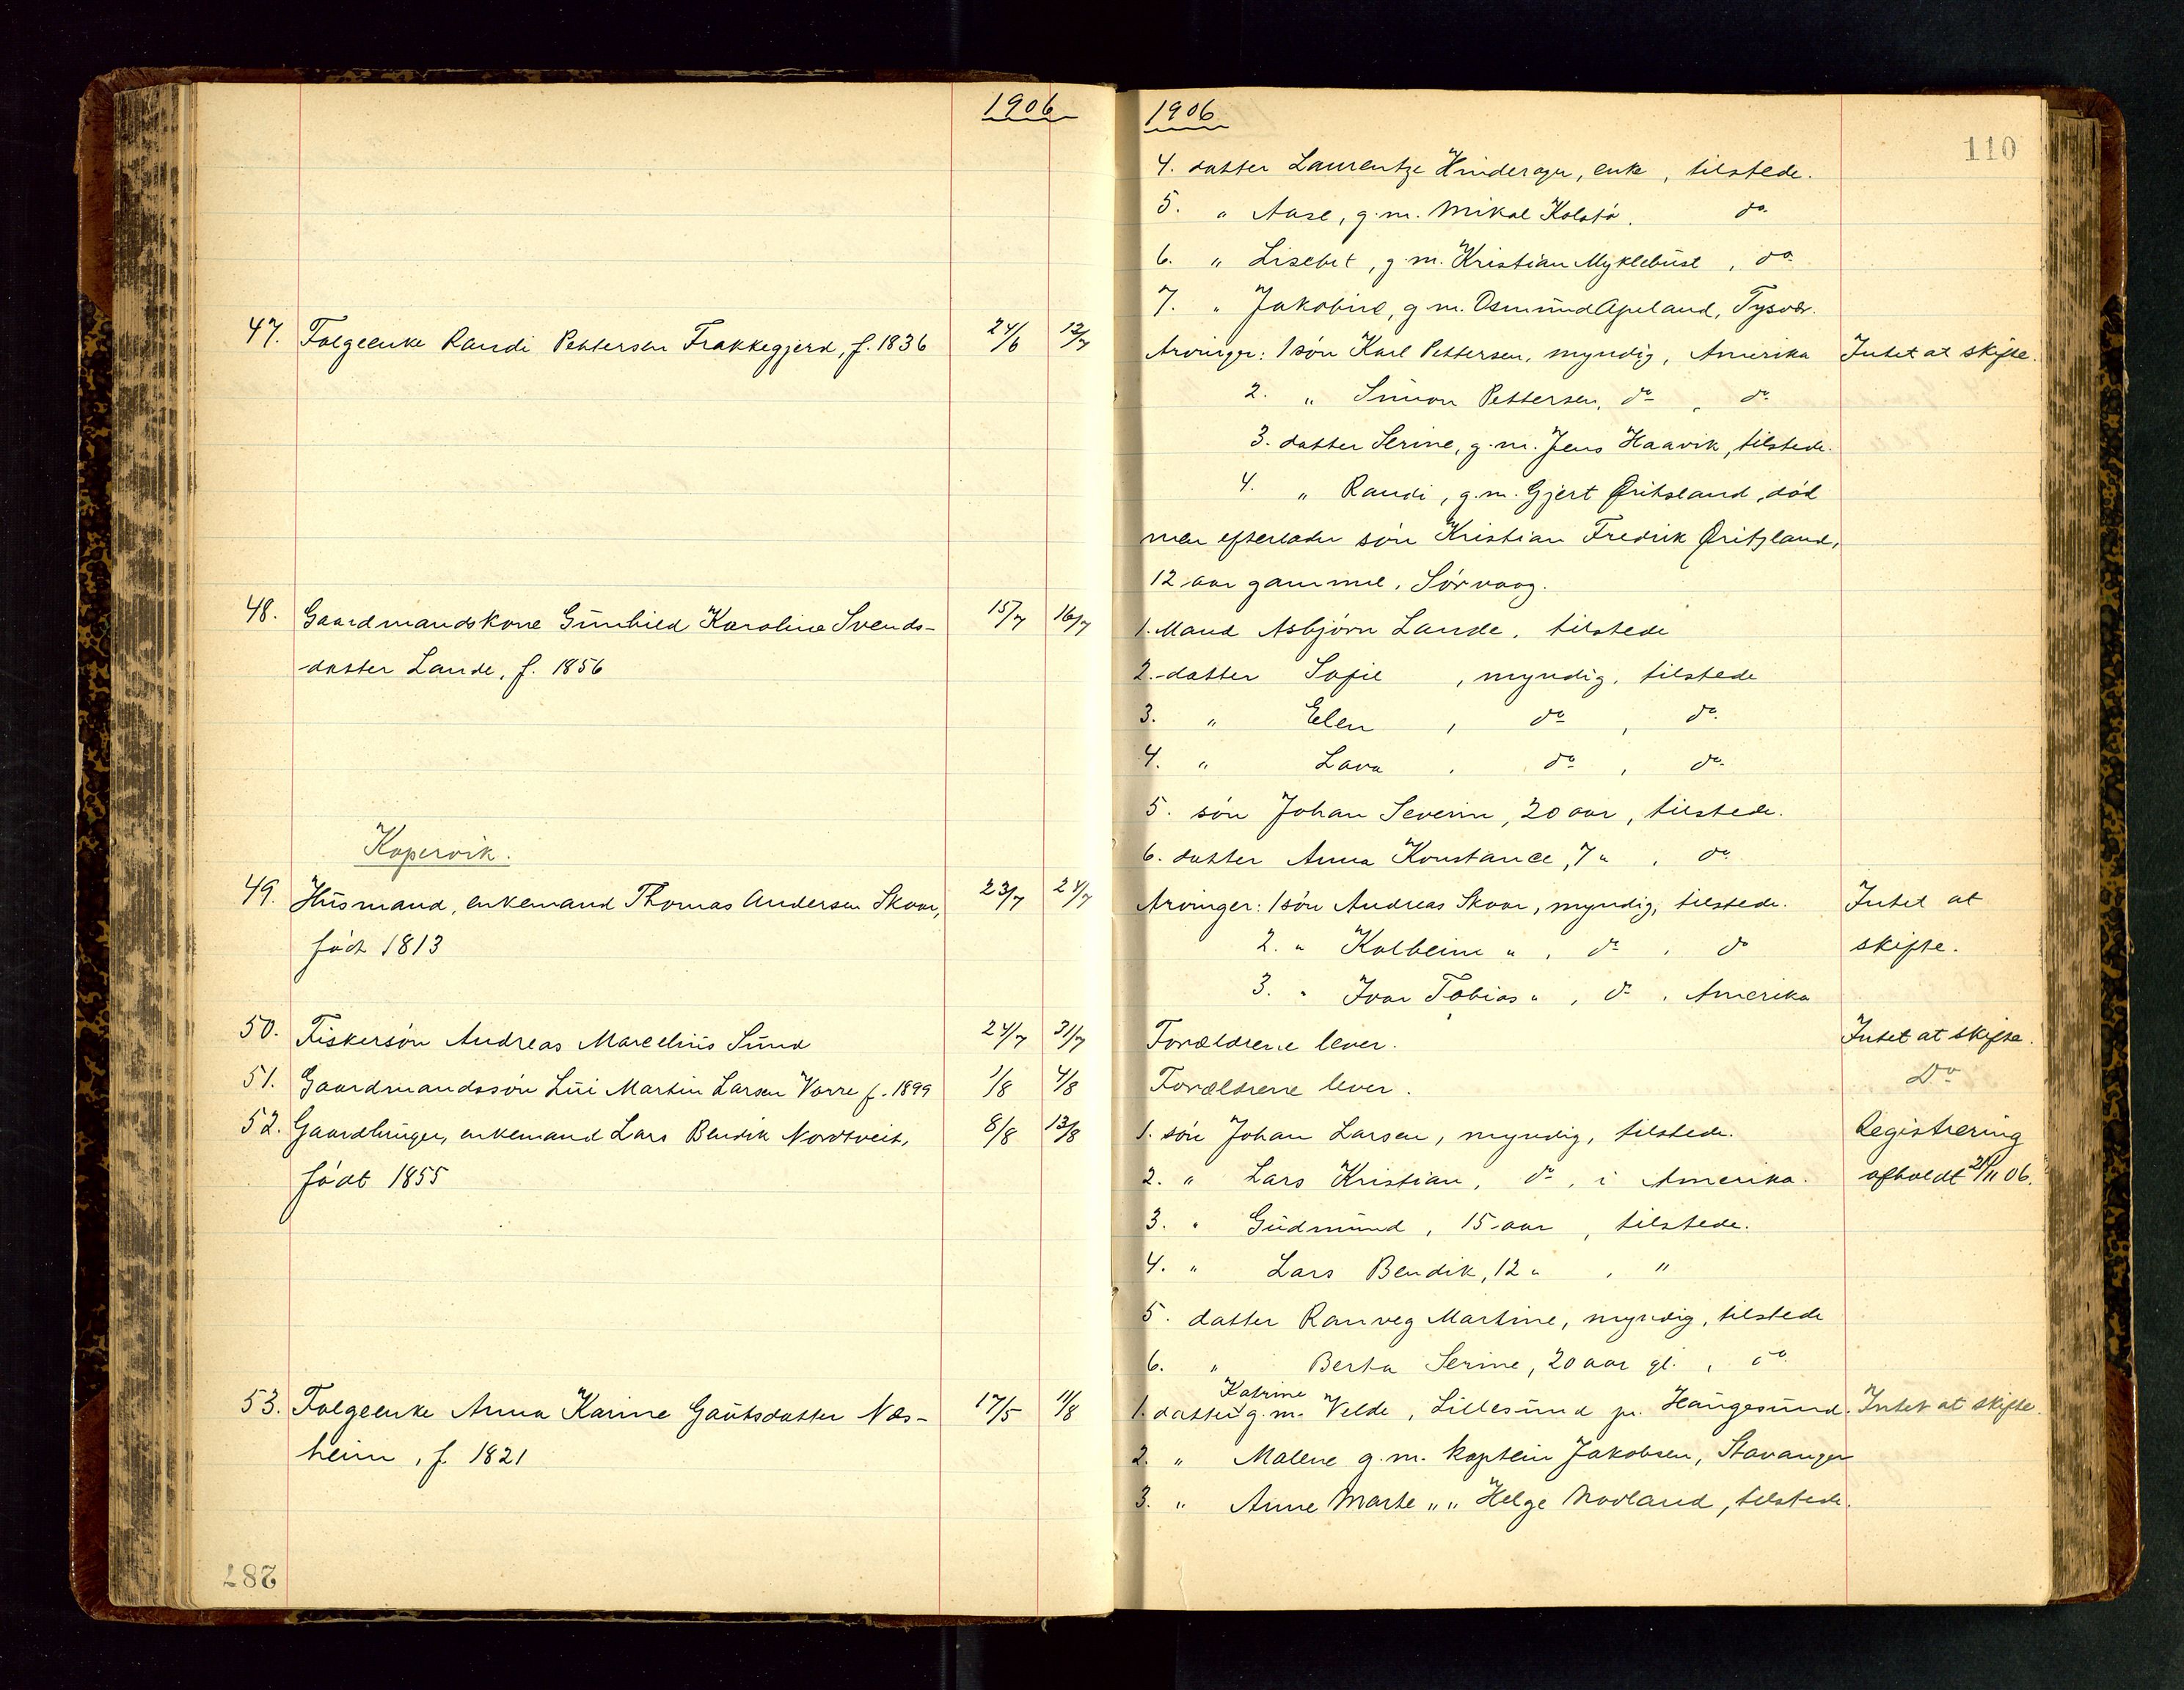 1906
47. Folgeenke Randi Pettersen Frakkegjerd, f. 1836 24/6 12/7
48. Gaardmandskone Gunhild Karoline Svends-
datter Lande, f. 1856 15/7 16/7
Kopervik.
49. Husmand, enkemand Thomas Andersen Skaar, 23/7 24/7
født 1813
50. Fiskersøn Andreas Marcelius Sund 24/7 31/7
51. Gaardmandssøn Lui Martin Larsen Vorre f. 1899 1/8 4/8
52. Gaardbruger, enkemand Lars Bendik Nordtveit, 8/8 13/8
født 1855
53. Folgeenke Anna Karine Gautsdatter Næs- 17/5 11/8
heim, f. 1821
287
1906
110
4. datter Laurentze Hinderager, enke, tilstede.
5. " Aase, g.m. Mikal Kolstø. do
6. " Lisebet, g.m. Kristian Myklebust, do
7. " Jakobine, g.m. Osmund Apeland, Tysvær.
Arvinger: 1 søn Karl Pettersen, myndig, Amerika Intet at skifte.
2. " Simon Pettersen, do , do
3. datter Serine, g.m. Jens Haavik, tilstede.
4. " Randi, g.m. Gjert Øritsland, død
men efterlader søn Kristian Fredrik Øritsland,
12 aar gammel, Sørvaag.
1. Mand Asbjørn Lande, tilstede
2. datter Sofie , myndig, tilstede
3. " Elen , do , do
4. " Lava , do , do
5. søn Johan Severin, 20 aar, tilstede.
6. datter Anna Konstance, 7 " , do
Arvinger: 1 søn Andreas Skaar, myndig, tilstede. Intet at
2. " Kolbeine " , do , do skifte.
3. " Ivar Tobias " , do , Amerika
Forældrene lever. Intet at skifte.
Forældrene lever. Do
1. søn Johan Larsen, myndig, tilstede. Registrering
2. " Lars Kristian, do, i Amerika. afholdt 21/11 06.
3. " Gudmund, 15 aar, tilstede.
4. " Lars Bendik, 12 " , "
5. datter Ranveg Martine, myndig, tilstede
6. " Berta Serine, 20 aar gl. , do
1. datter Katrine g.m. Velde, Lillesund pr. Haugesund. Intet at skifte.
2. " Malene g.m. kaptein Jakobsen, Stavanger
3. " Anne Marte " " Helge Norland, tilstede.